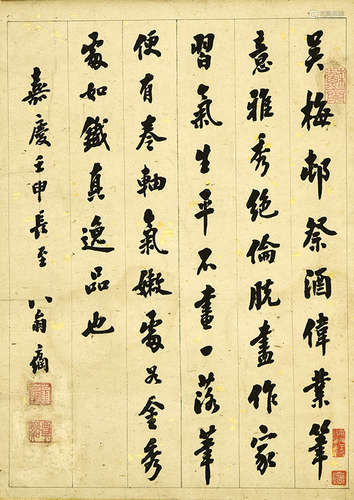 吴梅邨祭酒偉業筆
意雅秀絕倫脫盡作家
習氣生平不畫一落筆
便有卷軸氣嫩處如金秀
處如鐵真逸品也
嘉慶壬申長至 八翁